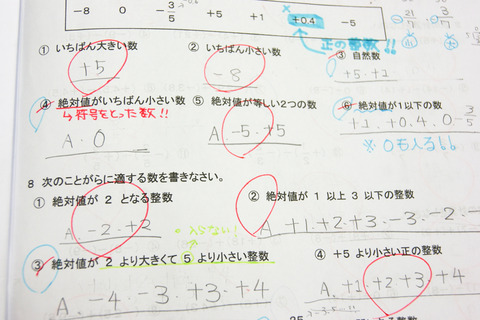 -8 0 -3/5 +5 +1 +0.4 -5
正の整数!!
① いちばん大きい数 ② いちばん小さい数 ③ 自然数
+5 -8 +5.+1
④ 絶対値がいちばん小さい数 ⑤ 絶対値が等しい2つの数 ⑥ 絶対値が1以下の数
↳符号をとった数!!
A.0 A -5.+5 +1.+0.4.0 -3/5
※0も入る!!
8 次のことがらに適する数を書きなさい。
① 絶対値が 2 となる整数 ② 絶対値が 1 以上 3 以下の整数
A -2.+2 A +1 +2 +3.-3.-2.-
入らない!
③ 絶対値が 2 より大きくて 5 より小さい整数 ④ +5 より小さい正の整数
A. -4.-3.+3.+4 A.+1.+2+3.+4